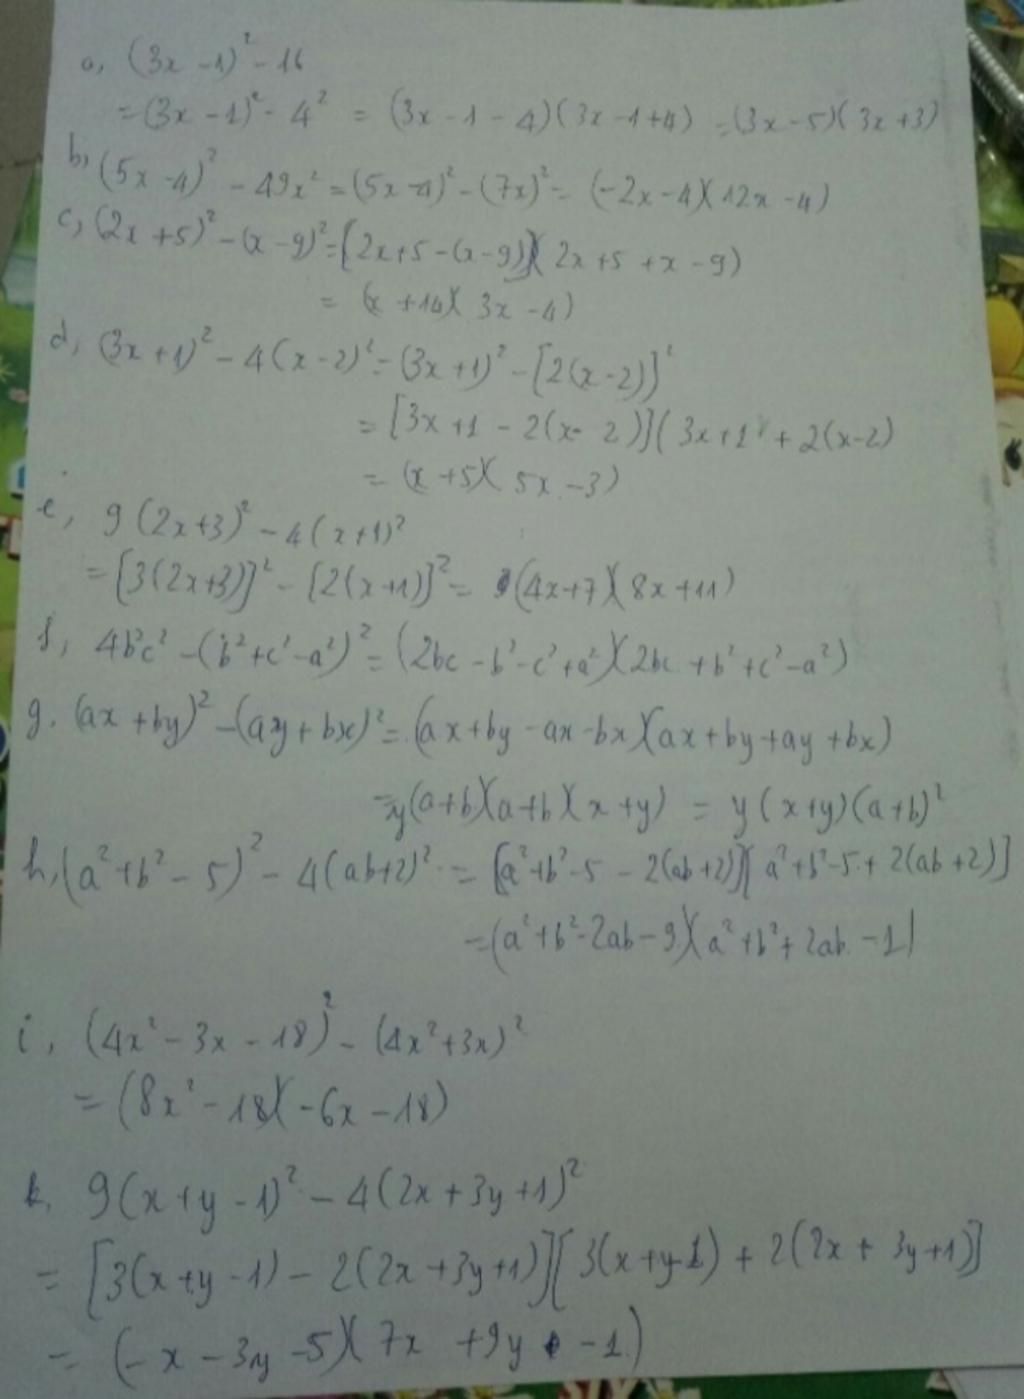 a, (3x - 1)² - 16
= (3x - 1)² - 4² = (3x - 1 - 4)(3x - 1 + 4) = (3x - 5)(3x + 3)
b, (5x - 4)² - 49x² = (5x - 4)² - (7x)² = (-2x - 4)(12x - 4)
c, (2x + 5)² - (x - 9)² = [2x + 5 - (x - 9)](2x + 5 + x - 9)
= (x + 14)(3x - 4)
d, (3x + 1)² - 4(x - 2)² = (3x + 1)² - [2(x - 2)]²
= [3x + 1 - 2(x - 2)](3x + 1 + 2(x - 2)
= (x + 5)(5x - 3)
e, 9(2x + 3)² - 4(x + 1)²
= [3(2x + 3)]² - [2(x + 1)]² = (4x + 7)(8x + 11)
f, 4b²c² - (b² + c² - a²)² = (2bc - b² - c² + a²)(2bc + b² + c² - a²)
g. (ax + by)² - (ay + bx)² = (ax + by - ax - bx)(ax + by + ay + bx)
= y(a + b)(a + b)(x + y) = y(x + y)(a + b)²
h, (a² + b² - 5)² - 4(ab + 2)² = [a² + b² - 5 - 2(ab + 2)][a² + b² - 5 + 2(ab + 2)]
= (a² + b² - 2ab - 9)(a² + b² + 2ab - 1)
i, (4x² - 3x - 18)² - (4x² + 3x)²
= (8x² - 18)(-6x - 18)
k, 9(x + y - 1)² - 4(2x + 3y + 1)²
= [3(x + y - 1) - 2(2x + 3y + 1)][3(x + y - 1) + 2(2x + 3y + 1)]
= (-x - 3y - 5)(7x + 9y - 1)